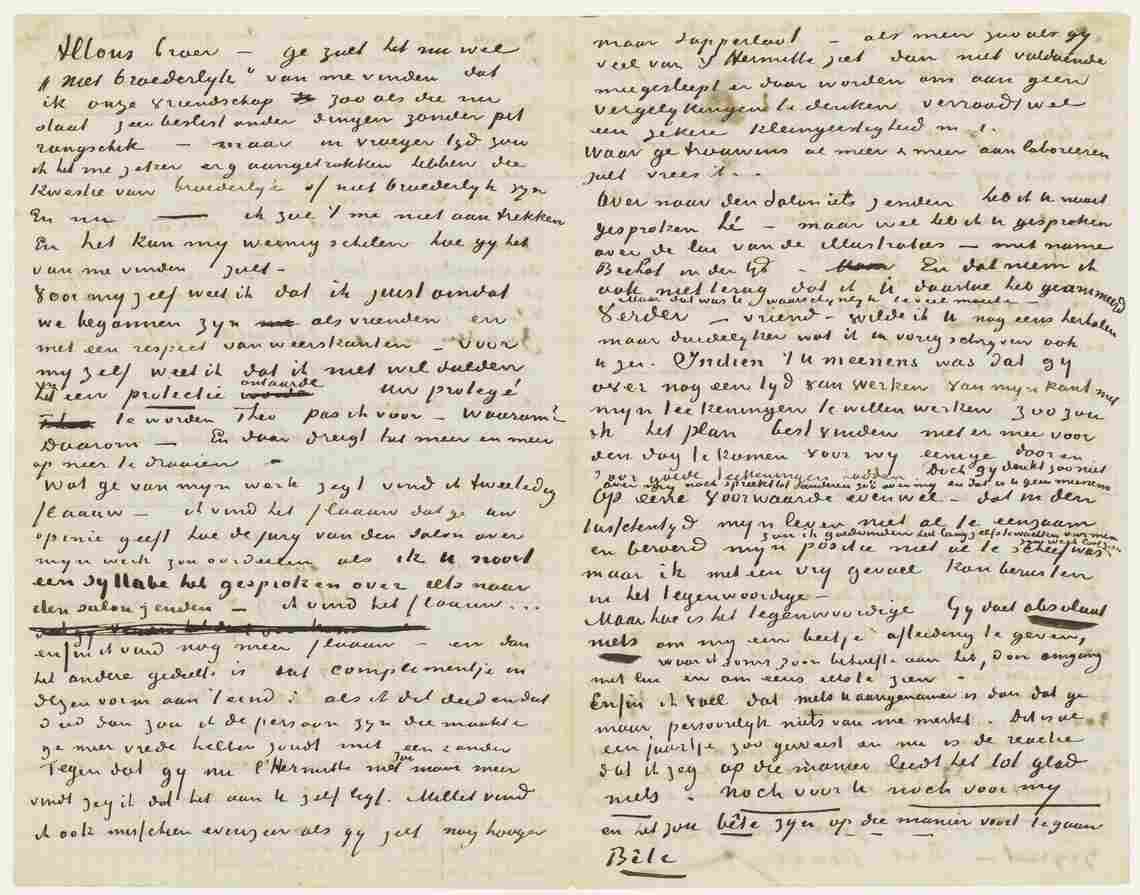 Allons broer — ge zult het nu wel
"niet broederlyk" van me vinden dat
ik onze vriendschap zooals die nu
staat zeer beslist onder dingen zonder pit
rangschik — maar in vroeger tyd zou
ik het me zeker erg aangetrokken hebben die
kwestie van broederlyk of niet broederlyk zyn
En nu — ik zal 't me niet aantrekken
En het kan my weinig schelen hoe gy het
van me vinden zult —
Voor myzelf weet ik dat ik juist omdat
we begonnen zyn als vrienden en
met een respect van weerskanten — voor
my zelf weet ik dat ik niet wil dulden
het een protectie ontaarde
Uw protegé
te worden Theo pas ik voor — Waarom?
Daarom — En daar dreigt het meer en meer
op neer te draaien —
Wat ge van myn werk zegt vind ik tweeledig
flaauw — ik vind het flaauw dat ge uw
opinie geeft hoe de jury van den Salon over
myn werk zou oordeelen als ik U nooit
een syllabe heb gesproken over iets naar
den salon zenden — ik vind het flaauw...
enfin ik vind nog meer flaauw — en dan
het andere gedeelte is dat complimentje in
dezen vorm aan 't eind: als ik dit deed en dat
deed dan zou ik de persoon zyn die maakte
ge meer vrede hebben zoudt met een ander
Tegen dat gy nu l'Hermitte niet zoo mooi meer
vindt zeg ik dat het aan U zelf ligt. Millet vind
ik ook misschien evenzeer als gy zelf nog hooger
maar sapperloot — als men zooals gy
veel van l'Hermitte ziet dan niet voldoende
meegesleept er door worden om aan geen
vergelykingen te denken verraadt wel
een zekere kleingeestigheid m.i.
Waar ge trouwens al meer & meer aan laboreeren
zult vrees ik..
Over naar den Salon iets zenden heb ik U nooit
gesproken hé — maar wel heb ik U gesproken
over de lui van de illustraties — met name
Buhot in der tyd — En dat neem ik
ook niet terug dat ik U daarover heb geanimeerd
Maar dat was U waarschynlyk te veel moeite —
Verder — vriend — wilde ik U nog eens herhalen
maar duidelyker wat ik in vorig schryven ook
U zei. Indien 't U meenens was dat gy
over nog een tyd van werken van myn kant met
myn teekeningen te willen werken zoo zou
ik het plan best vinden met er mee voor
den dag te komen voor wy eenige door en
door goede teekeningen hadden. Doch gy denkt zoo niet
over my noch spreekt tot anderen zoo over my en dat is U geen meenens
Op eene voorwaarde evenwel — dat in den
tusschentyd myn leven niet al te eenzaam
zou ik goedvinden het lang zelfs te wachten voor men myn werk liet zien
en beroerd myn positie niet al te scheef was
maar ik met een vry gevoel kan berusten
in het tegenwoordige —
Maar hoe is het tegenwoordige Gy doet absoluut
niets om my een beetje afleiding te geven,
waar ik soms zoon behoefte aan heb, door omgang
met lui en om eens iets te zien —
Enfin ik voel dat niets U aangenamer is dan dat ge
maar persoonlyk niets van me merkt. Dit is al
een jaartje zoo geweest en nu is de reactie
dat ik zeg op die manier leidt het tot glad
niets. Noch voor U noch voor my
en het zou bête zyn op die manier voort te gaan
Bête